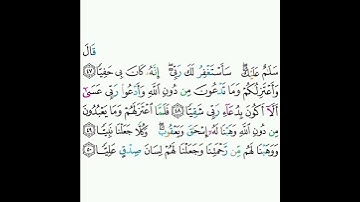 قَالَ
سَلَٰمٌ عَلَيْكَ ۖ سَأَسْتَغْفِرُ لَكَ رَبِّىٓ ۖ إِنَّهُۥ كَانَ بِى حَفِيًّا ٤٧
وَأَعْتَزِلُكُمْ وَمَا تَدْعُونَ مِن دُونِ ٱللَّهِ وَأَدْعُوا۟ رَبِّى عَسَىٰٓ
أَلَّآ أَكُونَ بِدُعَآءِ رَبِّى شَقِيًّا ٤٨ فَلَمَّا ٱعْتَزَلَهُمْ وَمَا يَعْبُدُونَ
مِن دُونِ ٱللَّهِ وَهَبْنَا لَهُۥٓ إِسْحَٰقَ وَيَعْقُوبَ ۖ وَكُلًّا جَعَلْنَا نَبِيًّا ٤٩
وَوَهَبْنَا لَهُم مِّن رَّحْمَتِنَا وَجَعَلْنَا لَهُمْ لِسَانَ صِدْقٍ عَلِيًّا ٥٠